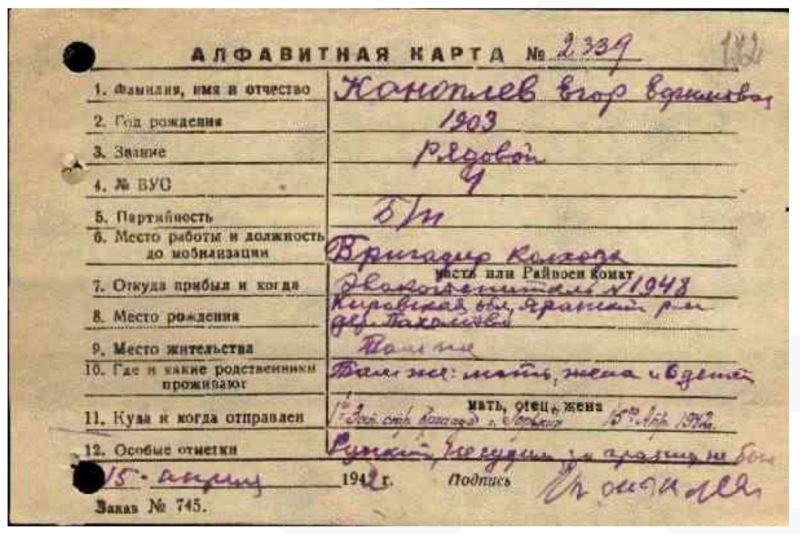 АЛФАВИТНАЯ КАРТА № 2339 172
1. Фамилия, имя и отчество Коноплев Егор Ефимович
2. Год рождения 1903
3. Звание рядовой
4. № ВУС 1
5. Партийность б/п
6. Место работы и должность до мобилизации Бригадир колхоза
часть или Райвоенкомат
7. Откуда прибыл и когда Эвакогоспиталь №1948
8. Место рождения Кировская обл, Яранский р-н
дер.
9. Место жительства Там же
10. Где и какие родственники проживают Там же: мать, жена и 6 детей
мать, отец, жена
11. Куда и когда отправлен Зап. стр. бригада г. Горький 15го Апр. 1942г.
12. Особые отметки Русский, несудим, за границ не был
15 - апреля 1942 г. Подпись
Заказ № 745.